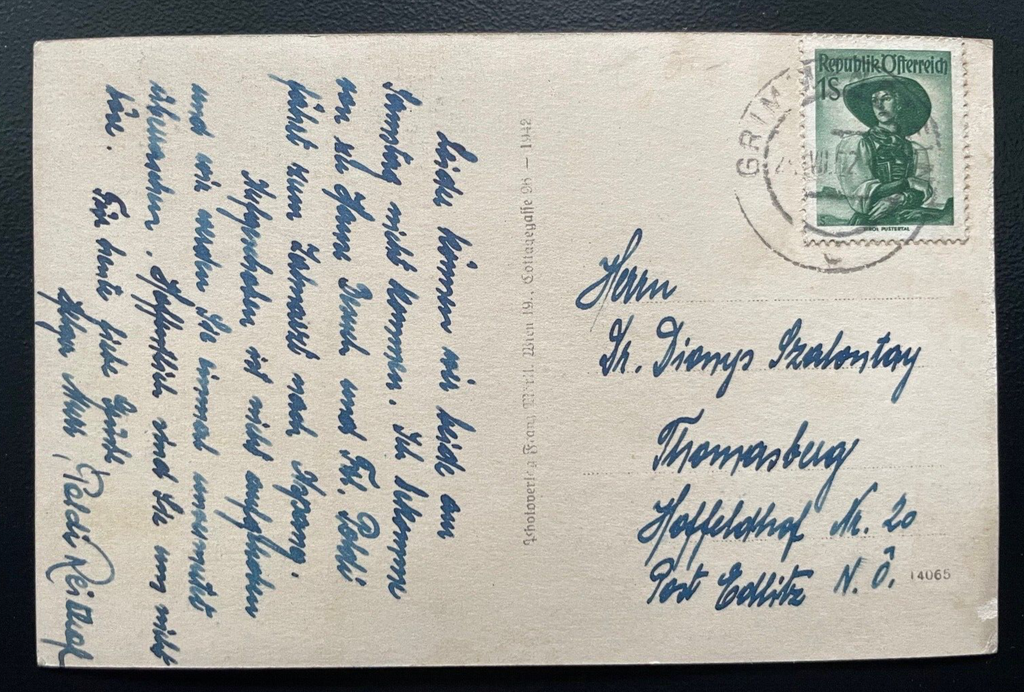 Leider können wir beide am
Samstag nicht kommen. Ich bekomme
und Frl. Poldi
fährt zum Zahnarzt nach Aspang.
Aufgeschoben ist nicht aufgehoben
und wir werden Sie einmal unvermutet
überraschen. Hoffentlich sind Sie uns nicht
böse. Für heute liebe Grüße
Photoverlag Franz Wien 19., Cottagegasse 26 – 1942
Republik Österreich
1S
TIROL PUSTERTAL
GRIM
Herrn
Dr. Dionys Szalontay
Thomasberg
Hoffeldhof Nr. 20
Post Edlitz N.Ö.
14065